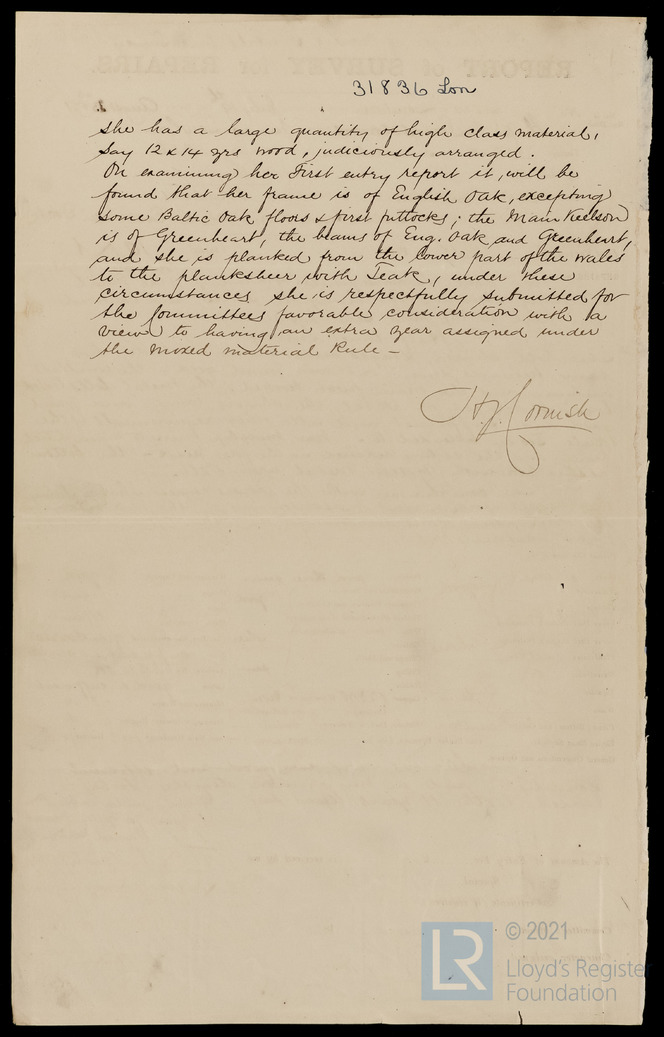 31836 Lon
She has a large quantity of high class material,
Say 12 & 14 yrs wood, judiciously arranged.
On examining her First entry report it, will be
found that her frame is of English Oak, excepting
some Baltic Oak floors & first futtocks; the Main Keelson
is of Greenheart, the beams of Eng. Oak and Greenheart,
and she is planked from the lower part of the wales
to the planksheer with Teak, under these
circumstances she is respectfully submitted for
the Committees favorable consideration with a
view to having an extra year assigned under
the Mixed material Rule —
H.J. Cornish
LR
© 2021
Lloyd's Register
Foundation